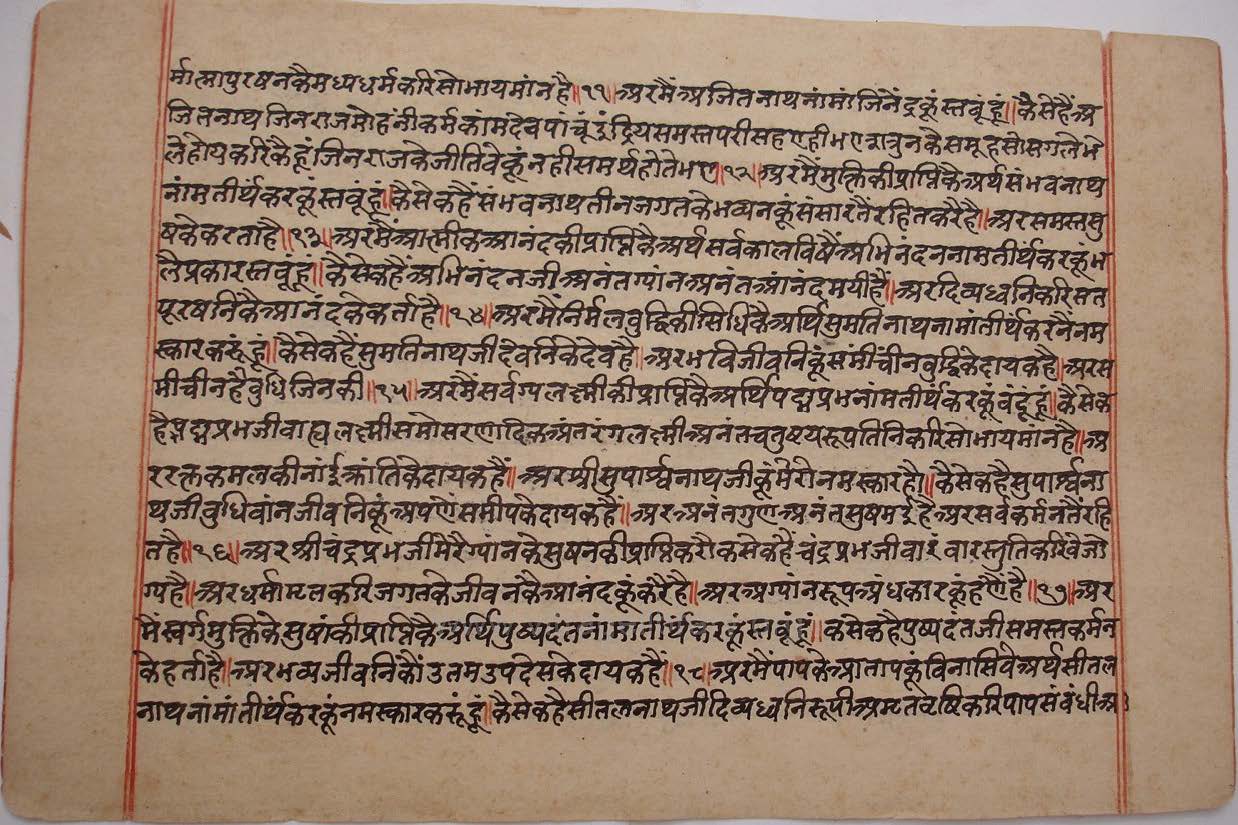 र्मात्मापुरषनकैमध्यधर्मकरिसोभायमांनहै॥११॥अरमैंअजितनाथनांमांजिनेंद्रकूंस्तवूंहूं॥कैसेहैंअ
जितनाथजिनराजमोहंनीकर्मकांमदेवपांचूंइंद्रियसमस्तपरीसहएहीभएशत्रुनकेसमूहसोसगलेभे
लेहोयकरिकैहूंजिनराजकेजीतिवेकूंनहीसमर्थहोतेभए॥१२॥अरमैंमुक्तिकीप्राप्तिकैअर्थसंभवनाथ
नांमतीर्थंकरकूंस्तवूंहूं॥कैसेकहैंसंभवनाथतीनजगतकेभव्यनकूंसंसारतैंरहितकरैहै॥अरसमस्तसु
षकेकरताहै॥१३॥अरमैंआत्मीकआनंदकीप्राप्तिकैअर्थसर्वकालविषैंअभिनंदननामतीर्थंकरकूंभ
लैप्रकारस्तवूंहूं॥कैसेकहैंअभिनंदनजीअनंतग्यांनअनंतआंनंदमयीहैं॥अरदिव्यध्वनिकरिसत
पूरषनिकैआनंदकेकर्ताहै॥१४॥अरमैंनिर्मलवुद्धिकीसिधिकैअर्थिसुमतिनाथनामांतीर्थंकरनैंनम
स्कारकरूंहूं॥कैसेकहैंसुमतिनाथजीदेवनिकेदेवहै॥अरभविजीवनिकूंसंमीचींनवुद्धिकेदायकहै॥अरस
मीचीनहैवुधिजिनकी॥१५॥अरमैंसर्वग्यलक्ष्मीकीप्राप्तिकैअर्थिपद्मप्रभनांमतीर्थंकरकूंवंदूंहूं॥कैसेक
हैपद्मप्रभजीवाह्यलक्ष्मीसंमोसरणादिकअंतरंगलक्ष्मीअनंतचतुष्टयरूपतिनिकरिसोभायमांनहै॥अ
ररक्तकमलकीनांईक्रांतिकेदायकहैं॥अरश्रीसुपार्श्वनाथजीकूंमेरोनमस्कारहो॥कैसेकहैसुपार्श्वना
थजीवुधिवांनजीवनिकूंअपणैंसमीपकेदायकहै॥अरअनंतगुणअनंतसुषमईहैअरसर्वकर्मनतैंरहि
तहै॥१६॥अरश्रीचंद्रप्रभजीमेरैग्यांनकेसुषनकीप्राप्तिकरौकैसेकहैंचंद्रप्रभजीवारंवारस्तुतिकरिवेजो
ग्यहै॥अरधर्मामृतकरिजगतकेजीवनकैआनंदकूंकरैहै॥अरअग्यांनरूपअंधकारकूंहणैंहै॥१७॥अर
मैंस्वर्गमुक्तिकेसुषांकीप्राप्तिकैअर्थिपुष्पदंतनांमातीर्थंकरकूंस्तवूंहूं॥कैसेकहैपुष्पदंतजीसमस्तकर्मन
केहर्ताहै॥अरभव्यजीवनिकौंउतमउपदेसकेदायकहैं॥१८॥अरमैंपापकेआतापकूंविनासिवेअर्थसीतल
नाथनांमांतीर्थंकरकूंनमस्कारकरूंहूं॥कैसेकहैसीतलनाथजीदिव्यध्वनिरूपीअमृतवृष्टिकरिपापसंवंधीआ